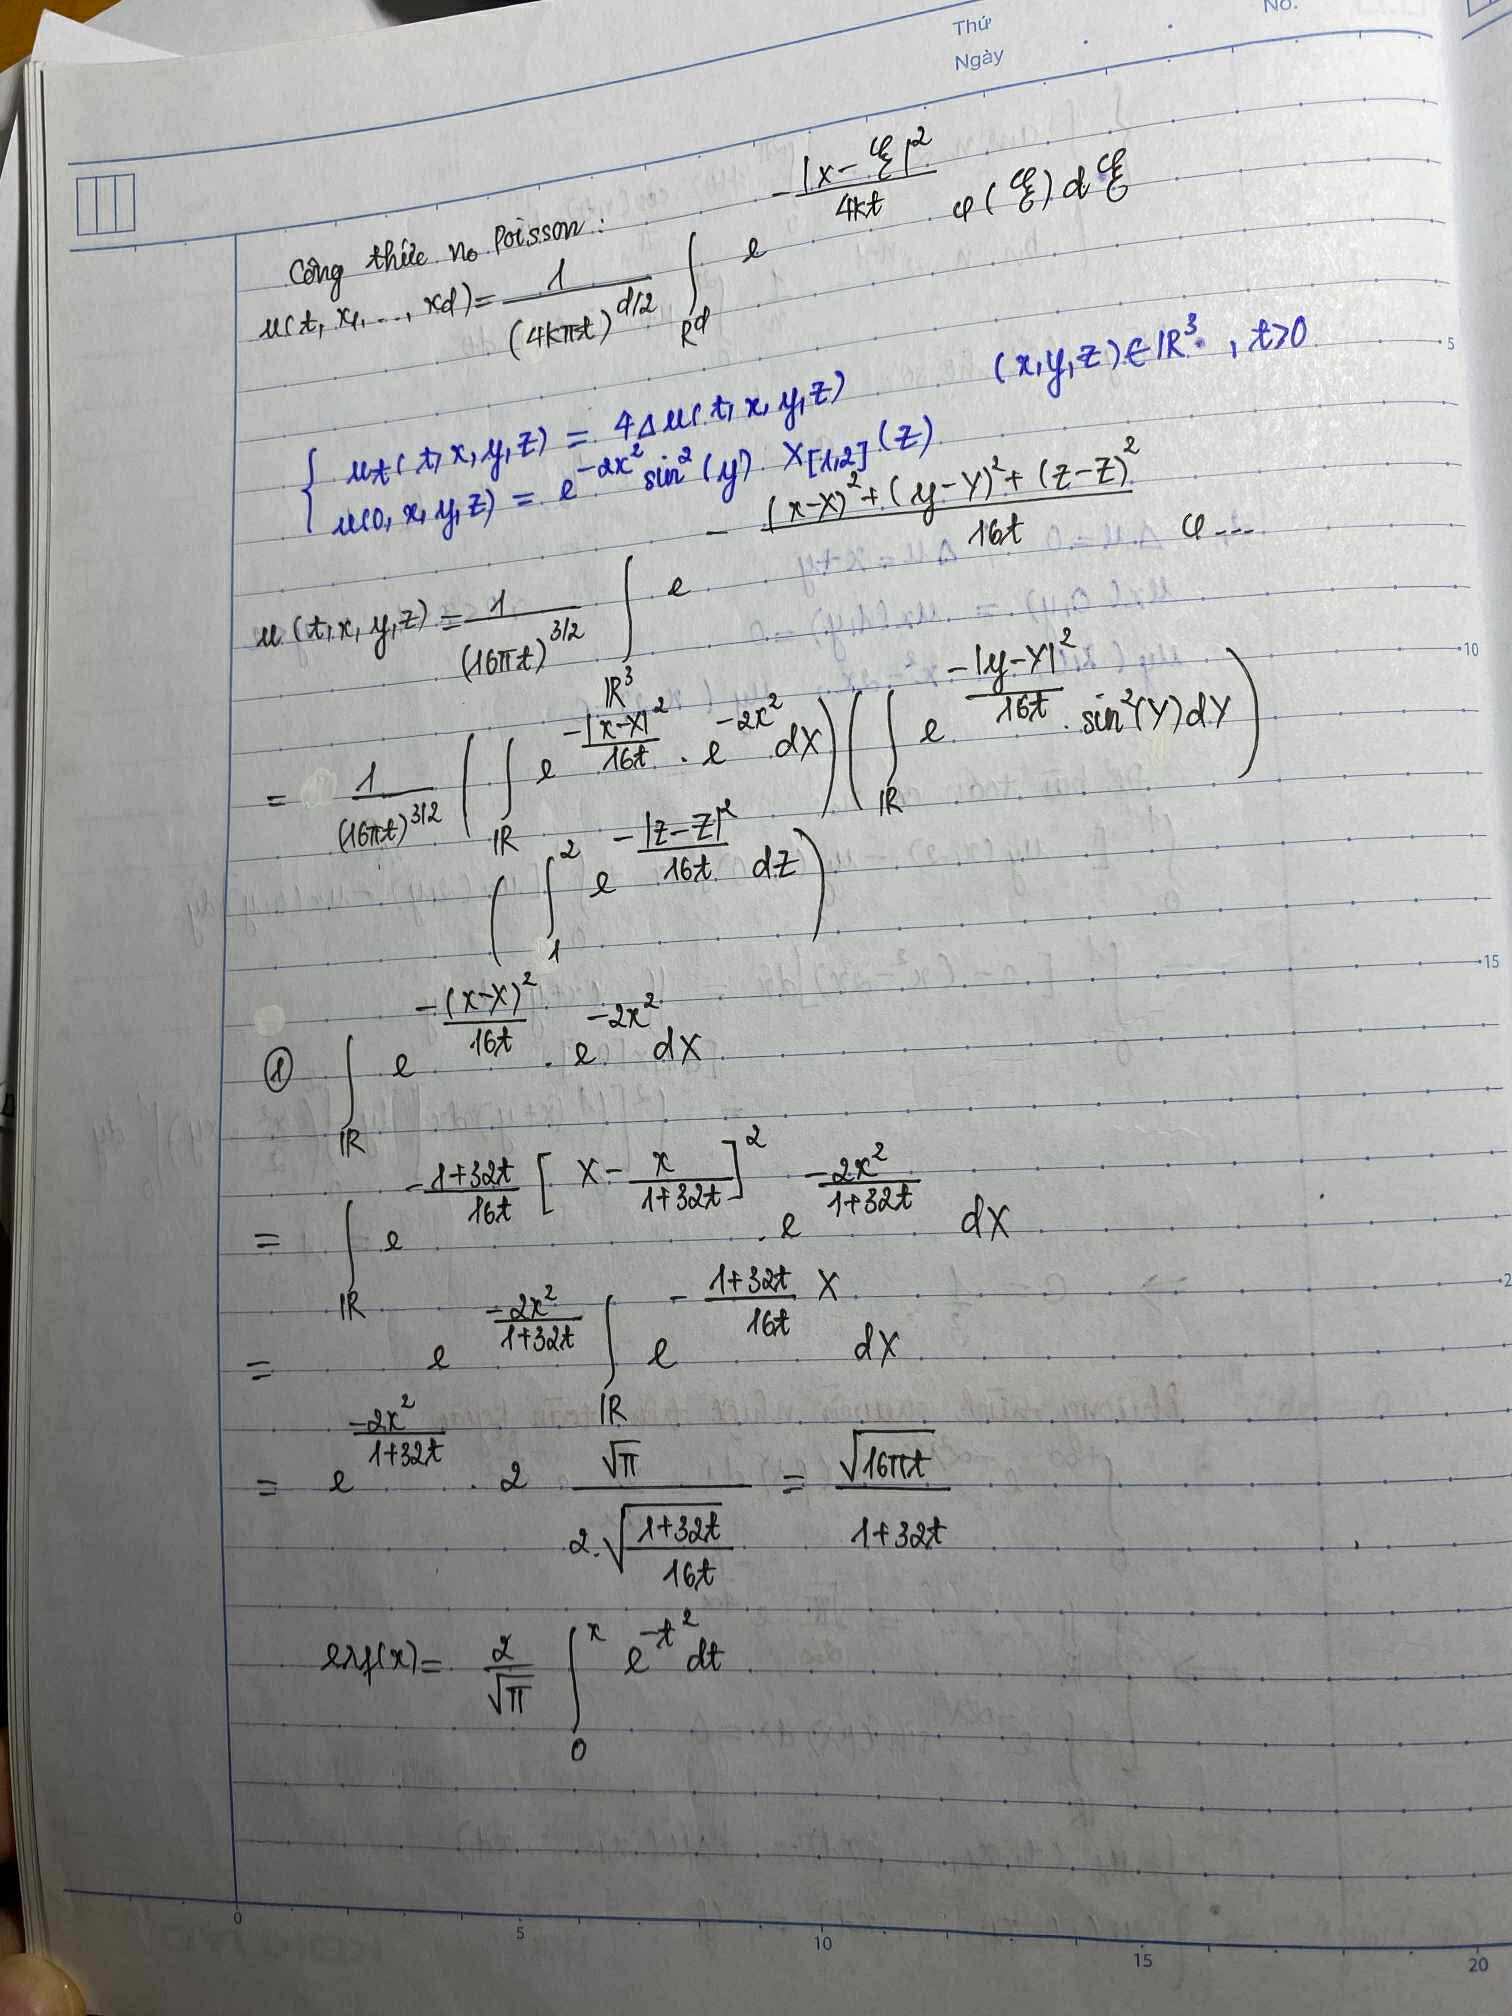 Thứ
No.
Ngày
Công thức no Poisson:
u(t, x₁, ..., xd) = 1/(4kπt)^{d/2} ∫_{R^d} e^{-|x-ξ|²/4kt} φ(ξ) dξ
{ ut(t, x, y, z) = 4Δu(t, x, y, z) (x, y, z) ∈ ℝ³, t>0
u(0, x, y, z) = e^{-2x²} sin²(y) · X_{[1,2]}(z)
u(t, x, y, z) = 1/(16πt)^{3/2} ∫_{ℝ³} e^{-((x-X)²+(y-Y)²+(z-Z)²)/16t} φ...
= 1/(16πt)^{3/2} (∫_ℝ e^{-|x-X|²/16t} · e^{-2x²} dX)(∫_ℝ e^{-|y-Y|²/16t} · sin²(Y) dY)
(∫_1^2 e^{-|z-Z|²/16t} dZ)
① ∫_ℝ e^{-(x-X)²/16t} · e^{-2x²} dX
= ∫_ℝ e^{-(1+32t)/16t [X - x/(1+32t)]²} · e^{-2x²/(1+32t)} dX
= e^{-2x²/(1+32t)} ∫_ℝ e^{-(1+32t)/16t X} dX
= e^{-2x²/(1+32t)} · 2 √π/(2.√((1+32t)/16t)) = √(16πt)/(1+32t)
erf(x) = 2/√π ∫_0^x e^{-t²} dt
5
10
15
2
0
5
10
15
20